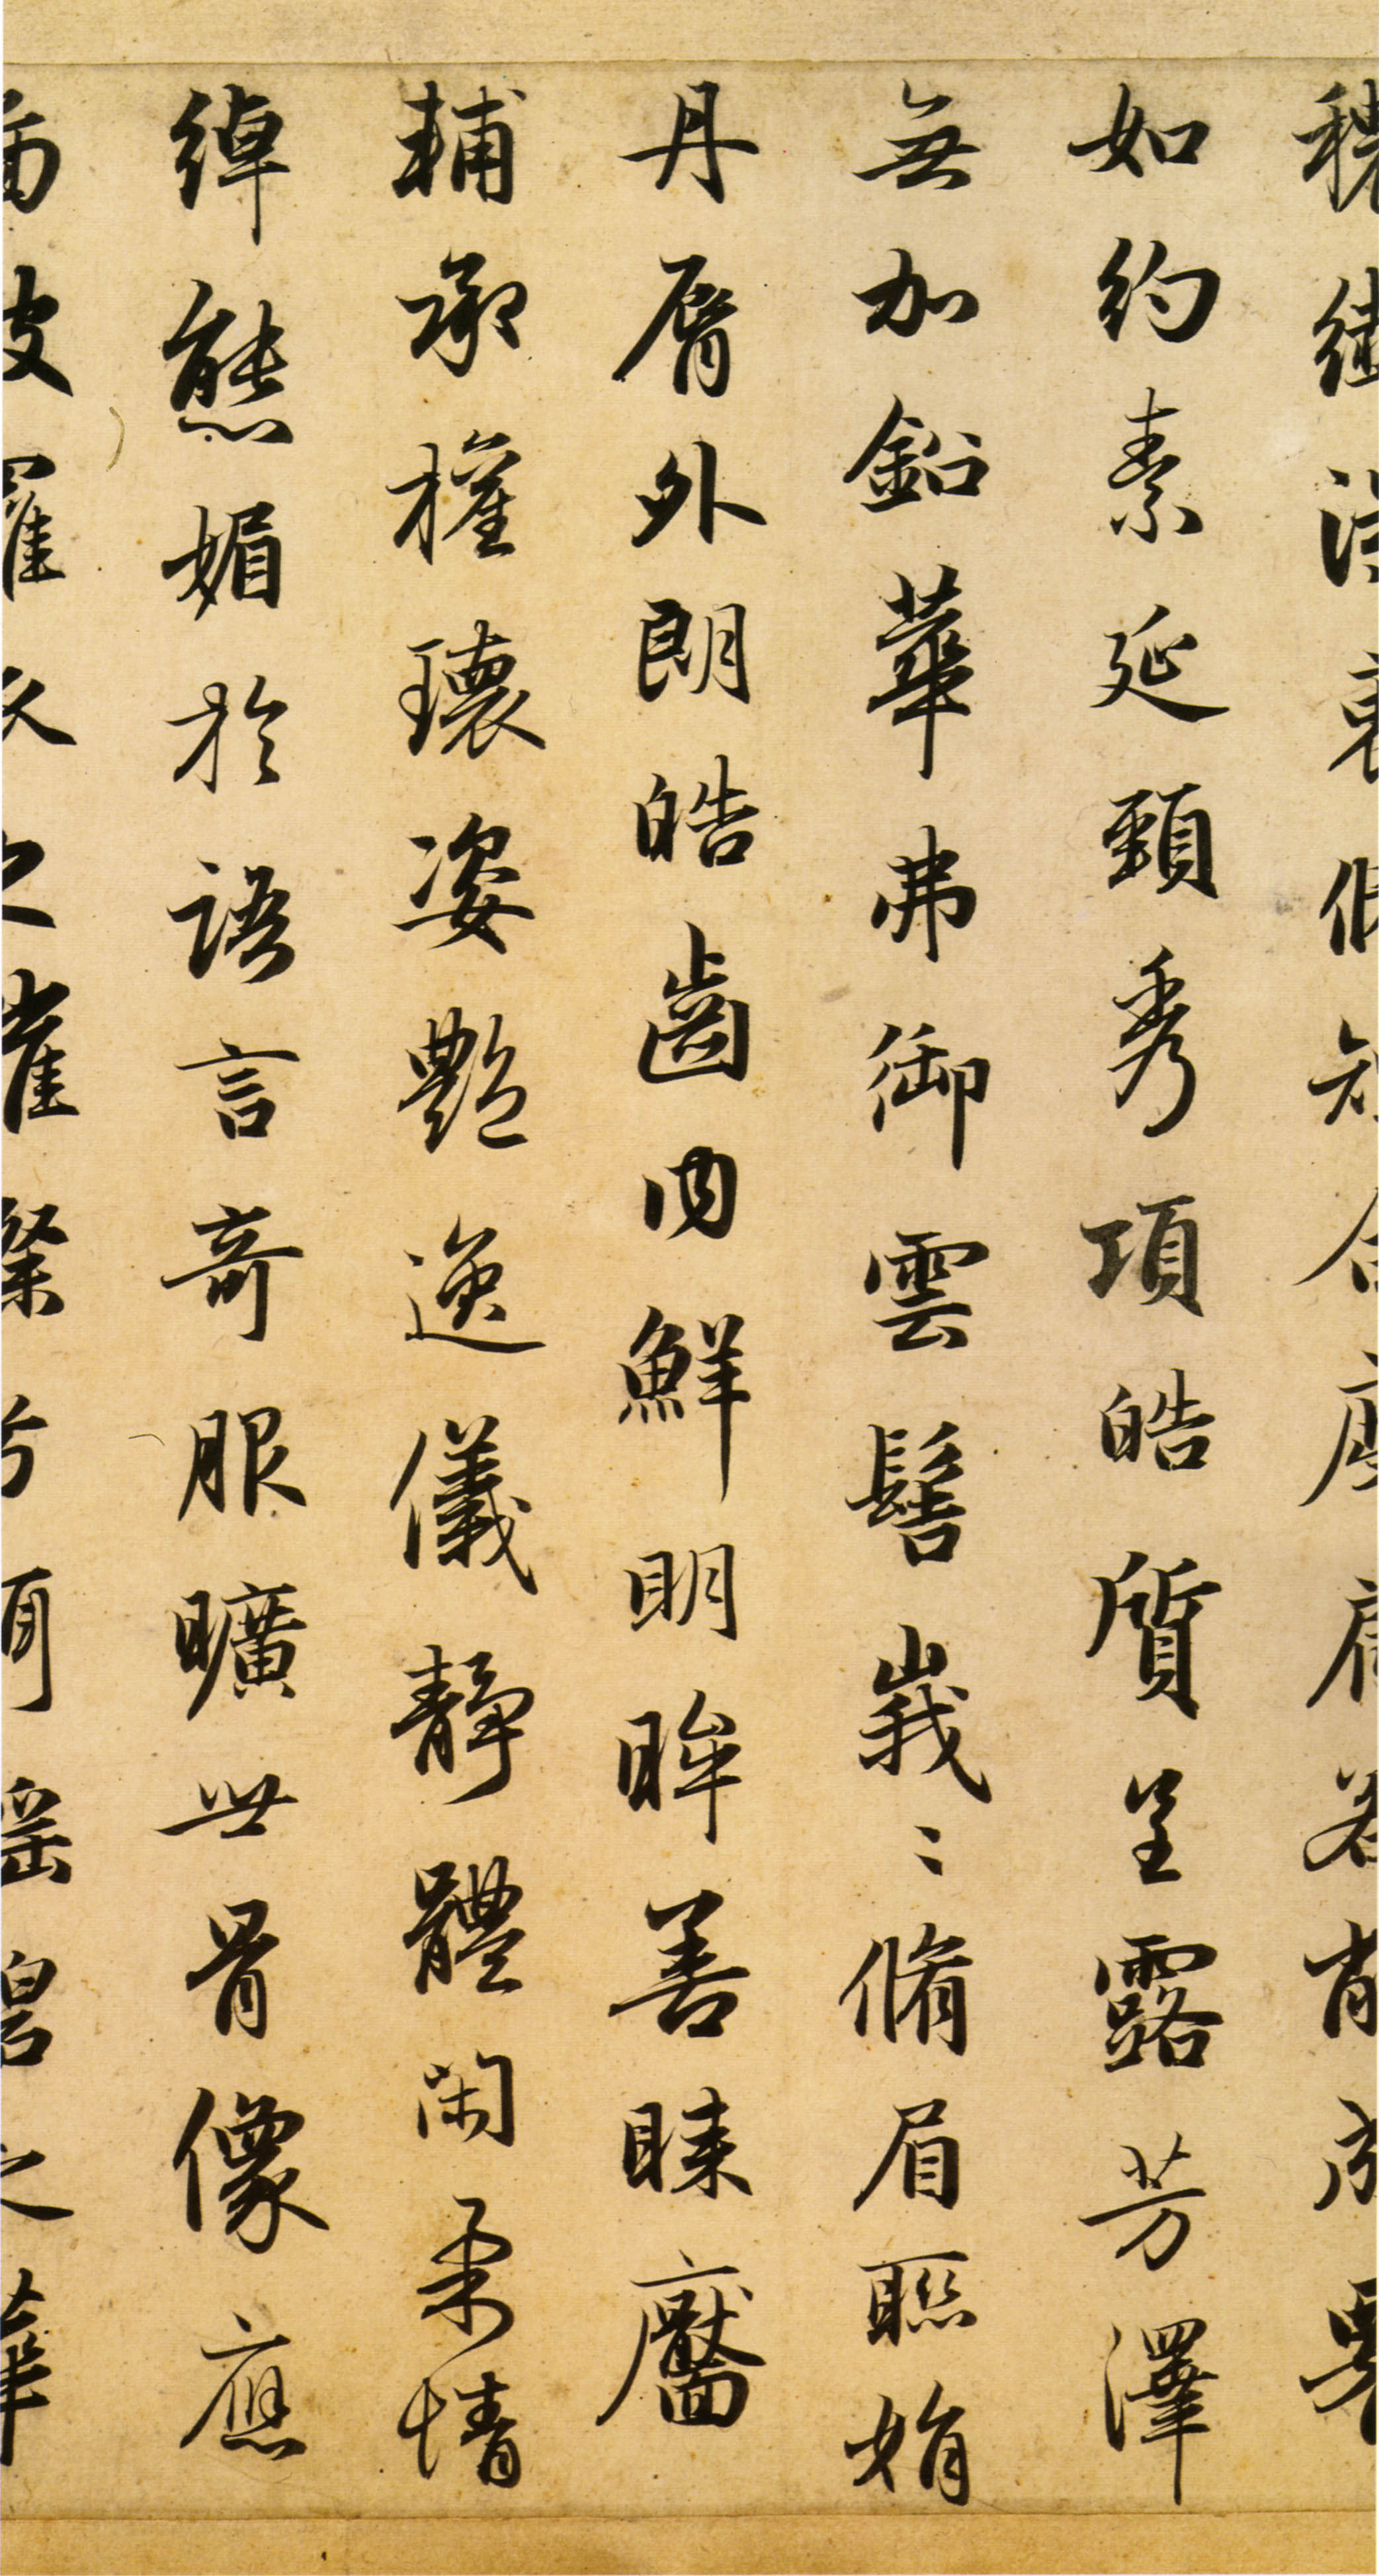 穠纖得衷脩短合度肩若削成署
如約素延頸秀項皓質呈露芳澤
無加鉛華弗御雲髻峩〻脩眉聯娟
丹脣外朗皓齒内鮮明眸善睞靨
輔承權瓌姿艷逸儀靜體閑柔情
綽態媚於語言奇服曠世骨像應
圖披羅衣之璀粲兮珥瑤碧之華